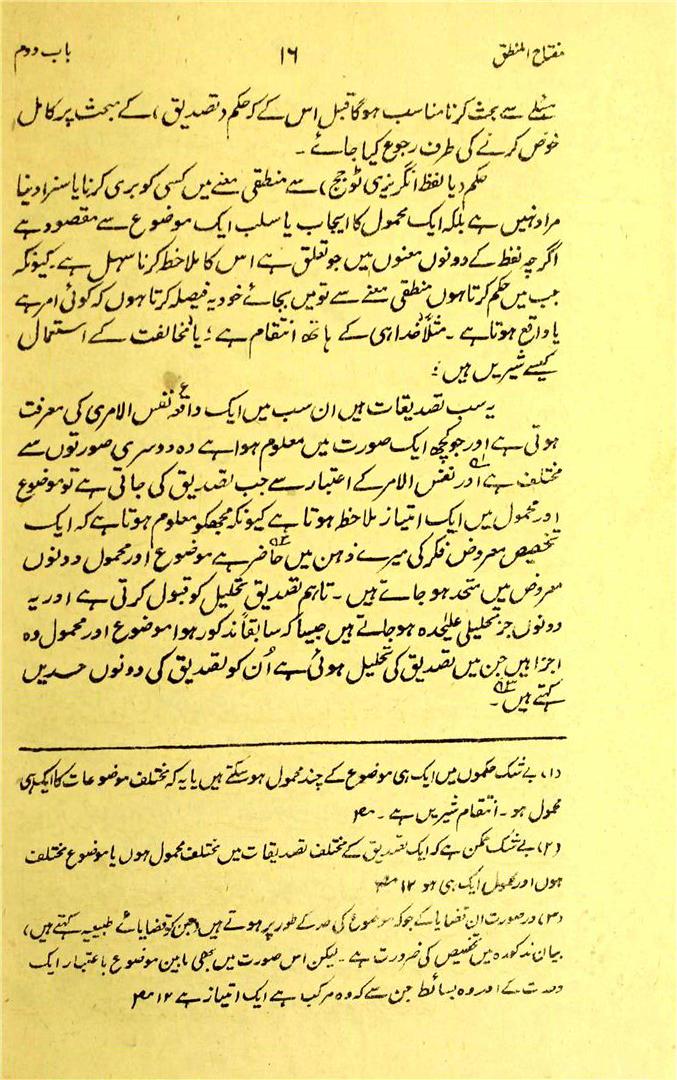 مفتاح المنطق ۱۶ باب دوم
مسئلے سے بحث کرنا مناسب ہوگا قبل اس کے کہ حکم (تصدیق) کے مبحث پر کامل
خوض کرنے کی طرف رجوع کیا جائے ۔
حکم (یا لفظ انگریزی ٹو جج) سے منطقی معنے میں کسی کو بری کرنا یا سزا دینا
مراد نہیں ہے بلکہ ایک محمول کا ایجاب یا سلب ایک موضوع سے مقصود ہے
اگرچہ لفظ کے دونوں معنوں میں جو تعلق ہے اس کا ملاحظہ کرنا سہل ہے۔ کیونکہ
جب میں حکم کرتا ہوں منطقی معنے سے تو میں بجائے خود یہ فیصلہ کرتا ہوں کہ کوئی امر ہے
یا واقع ہوتا ہے ۔ مثلاً خدا ہی کے ہاتھ انتقام ہے ؛ یا مخالفت کے استعمال
کیسے شیریں ہیں ؛
یہ سب تصدیقات ہیں ان سب میں ایک واقعہ نفس الامری کی معرفت
ہوتی ہے اور جو کچھ ایک صورت میں معلوم ہوا ہے وہ دوسری صورتوں سے
مختلف ہے ۱؎ اور نفس الامر کے اعتبار سے جب تصدیق کی جاتی ہے تو موضوع
اور محمول میں ایک امتیاز ملاحظہ ہوتا ہے کیونکہ مجھکو معلوم ہوتا ہے کہ ایک
تخصیص معروض فکر کی میرے ذہن میں حاضر ہے ۲؎ موضوع اور محمول دونوں
معروض میں متحد ہو جاتے ہیں ۔ تاہم تصدیق تحلیل کو قبول کرتی ہے اور یہ
دونوں جز تحلیلی علیٰحدہ ہو جاتے ہیں جیسا کہ سابقاً مذکور ہوا موضوع اور محمول وہ
اجزا ہیں جن میں تصدیق کی تحلیل ہوئی ہے اُن کو تصدیق کی دونوں حدیں
کہتے ہیں ۳؎ ۔
(۱) بے شک حکموں میں ایک ہی موضوع کے چند محمول ہو سکتے ہیں یا یہ کہ مختلف موضوعات کا ایک ہی
محمول ہو ۔ انتقام شیریں ہے ۔
(۲) بے شک ممکن ہے کہ ایک تصدیق کے مختلف تصدیقات میں مختلف محمول ہوں یا موضوع مختلف
ہوں اور محمول ایک ہی ہو ۱۲
(۳) درصورت ان قضایا کے جو کہ موضوع کی حد کے طور پر ہوتے ہیں (جن کو قضایائے طبیعیہ کہتے ہیں)
بیان مذکورہ میں تخصیص کی ضرورت ہے ۔ لیکن اس صورت میں بھی مابین موضوع باعتبار ایک
وحدت کے اور وہ بسائط جن سے کہ وہ مرکب ہے ایک امتیاز ہے ۱۲